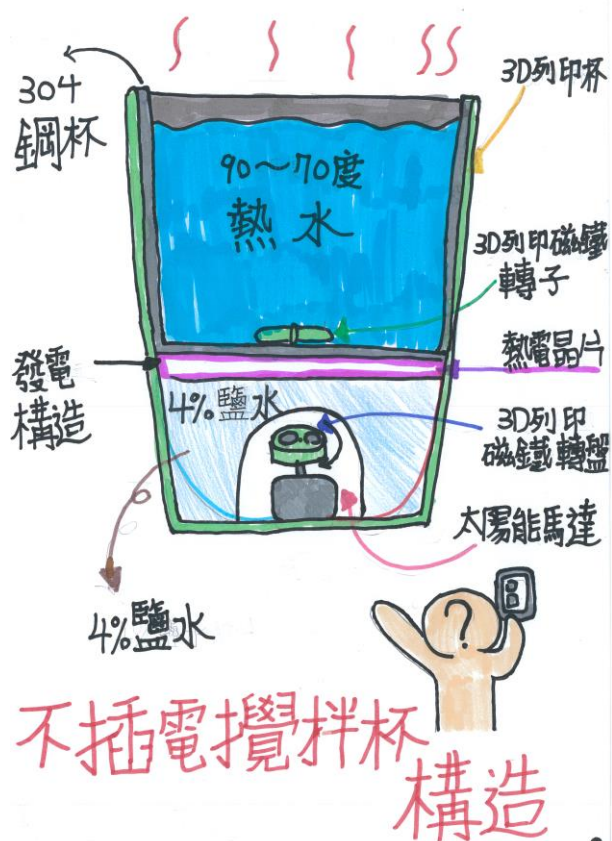 304
鋼杯
3D列印杯
90～70度
熱水
3D列印磁鐵
轉子
發電
構造
熱電晶片
4%鹽水
3D列印
磁鐵轉盤
太陽能馬達
4%鹽水
?
不插電攪拌杯
構造